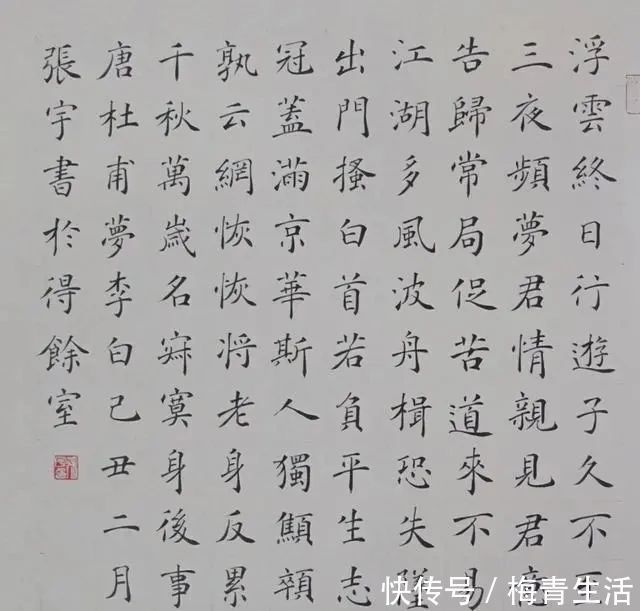 浮雲終日行遊子久不
三夜頻夢君情親見君意
告歸常局促苦道來不易
江湖多風波舟楫恐失墜
出門搔白首若負平生志
冠蓋滿京華斯人獨顦顇
孰云網恢恢將老身反累
千秋萬歲名寂寞身後事
唐杜甫夢李白己丑二月
張宇書於得餘室
快传号 / 梅青生活